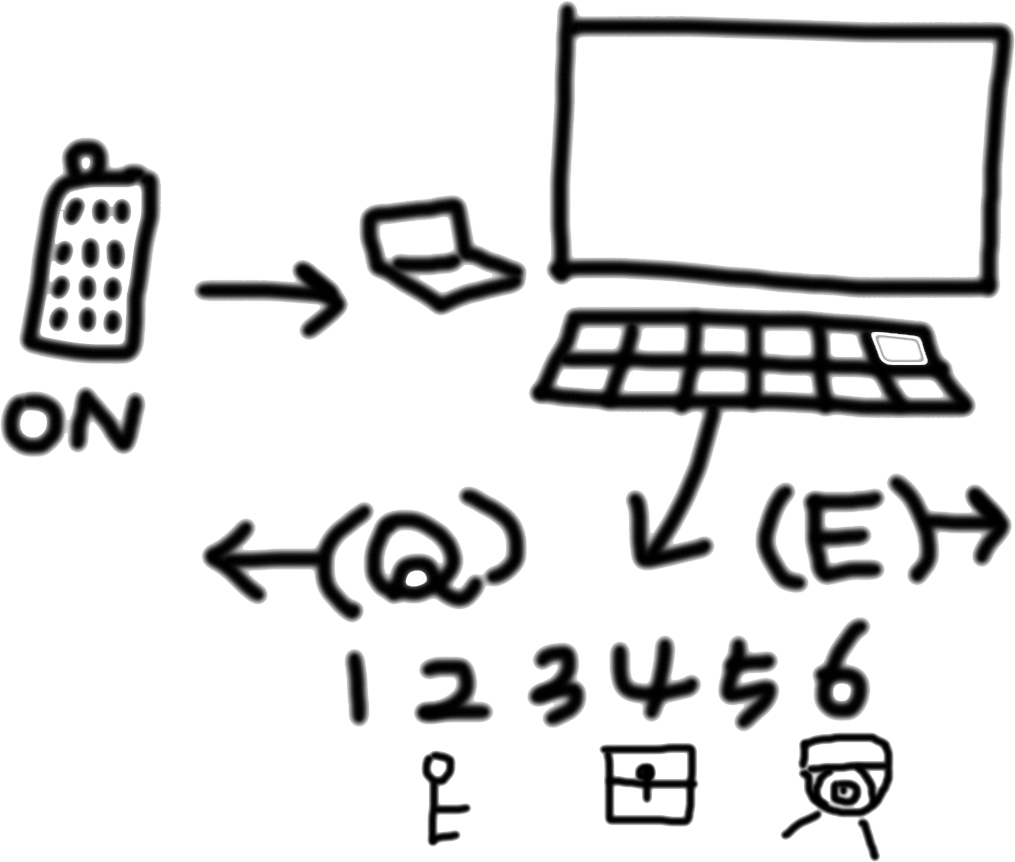 ON
(Q) (E)
1 2 3 4 5 6